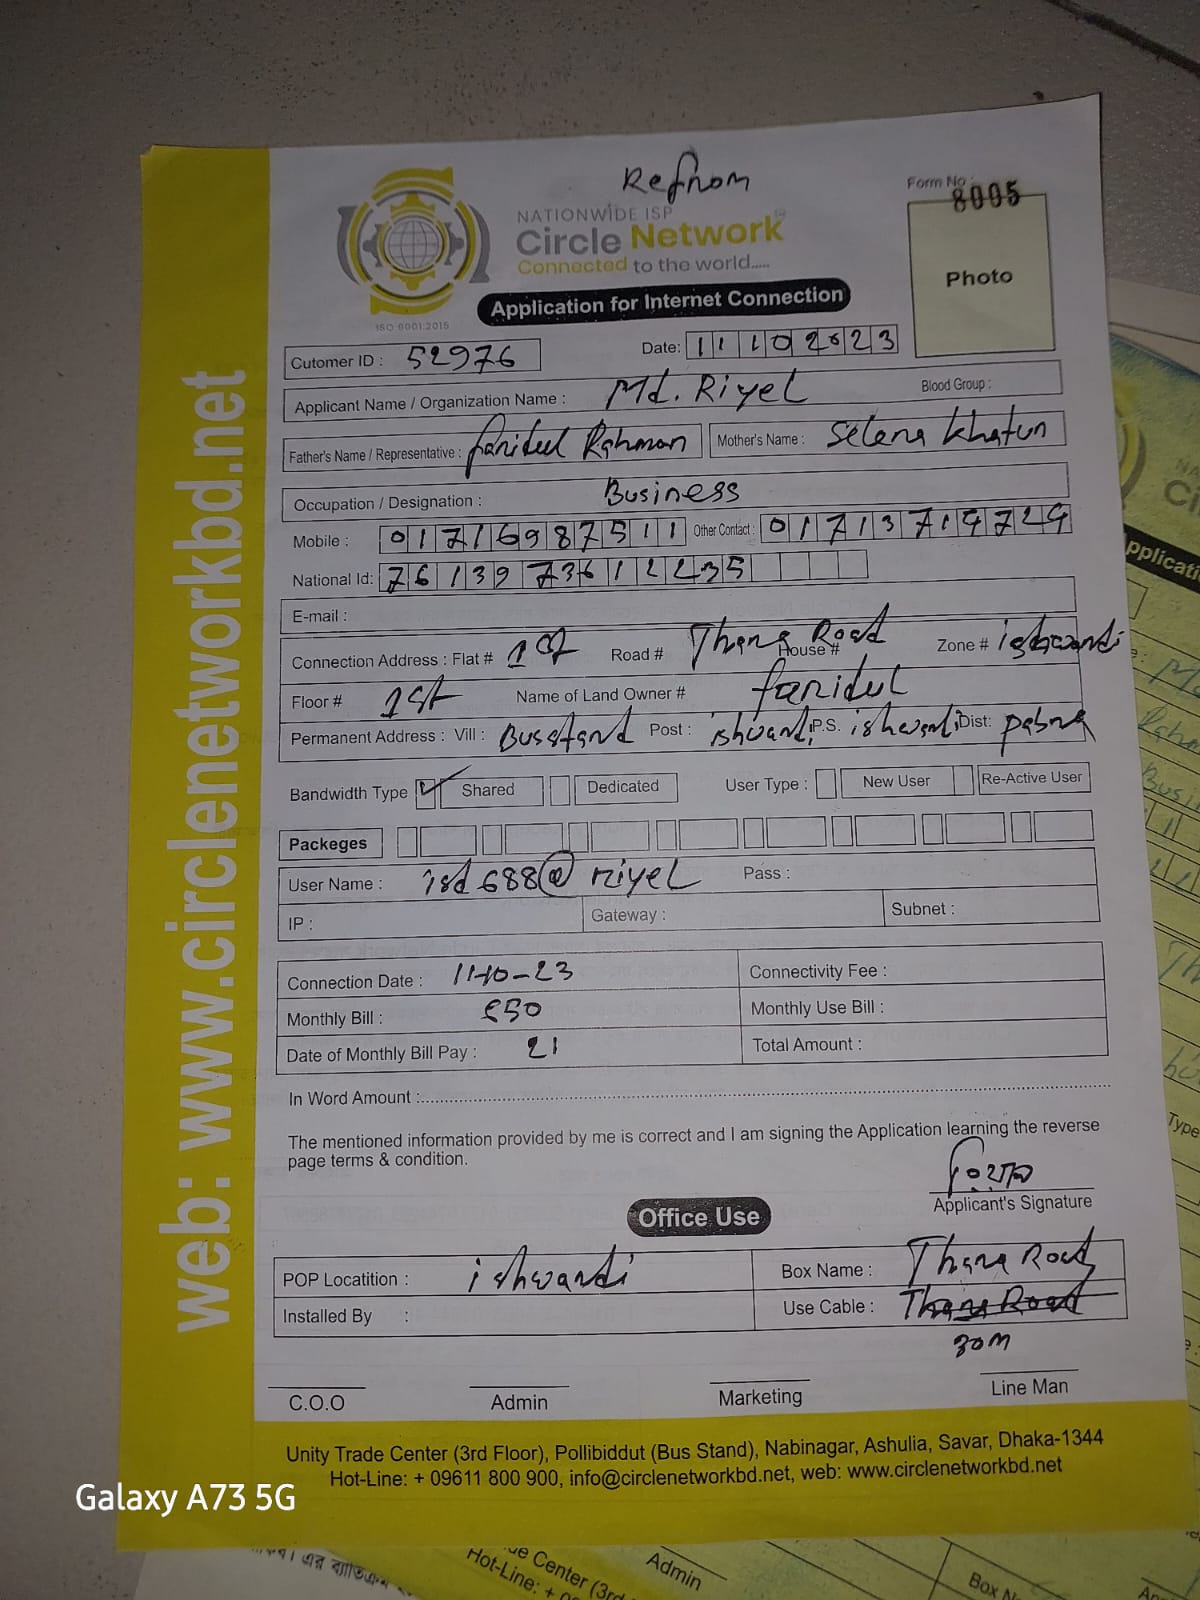 Refrom
Form No : 8005
NATIONWIDE ISP
Circle Network
Connected to the world.....
ISO 9001:2015
Photo
Application for Internet Connection
Cutomer ID : 52976
Date: 11 10 2023
Applicant Name / Organization Name : Md. Riyel
Blood Group :
Father's Name / Representative : faridul Rahman
Mother's Name : Selena Khatun
Occupation / Designation : Business
Mobile : 01716987511 Other Contact : 01713719729
National Id: 7613973612235
E-mail :
Connection Address : Flat # 1st Road # Thana Road House # Zone # ishwardi
Floor # 1st Name of Land Owner # faridul
Permanent Address : Vill : Busstand Post : ishwardi P.S. ishwardi Dist: pabna
Bandwidth Type Shared Dedicated User Type : New User Re-Active User
Packeges
User Name : isd688@riyel Pass :
IP : Gateway : Subnet :
Connection Date : 11-10-23 Connectivity Fee :
Monthly Bill : 550 Monthly Use Bill :
Date of Monthly Bill Pay : 21 Total Amount :
In Word Amount :
The mentioned information provided by me is correct and I am signing the Application learning the reverse
page terms & condition.
Applicant's Signature
Office Use
POP Locatition : ishwardi Box Name : Thana Road
Installed By : Use Cable : Thana Road
30m
C.O.O Admin Marketing Line Man
Unity Trade Center (3rd Floor), Pollibiddut (Bus Stand), Nabinagar, Ashulia, Savar, Dhaka-1344
Hot-Line: + 09611 800 900, info@circlenetworkbd.net, web: www.circlenetworkbd.net
web: www.circlenetworkbd.net
Galaxy A73 5G
ue Center (3rd
Hot-Line: +
Admin
Box N
Type